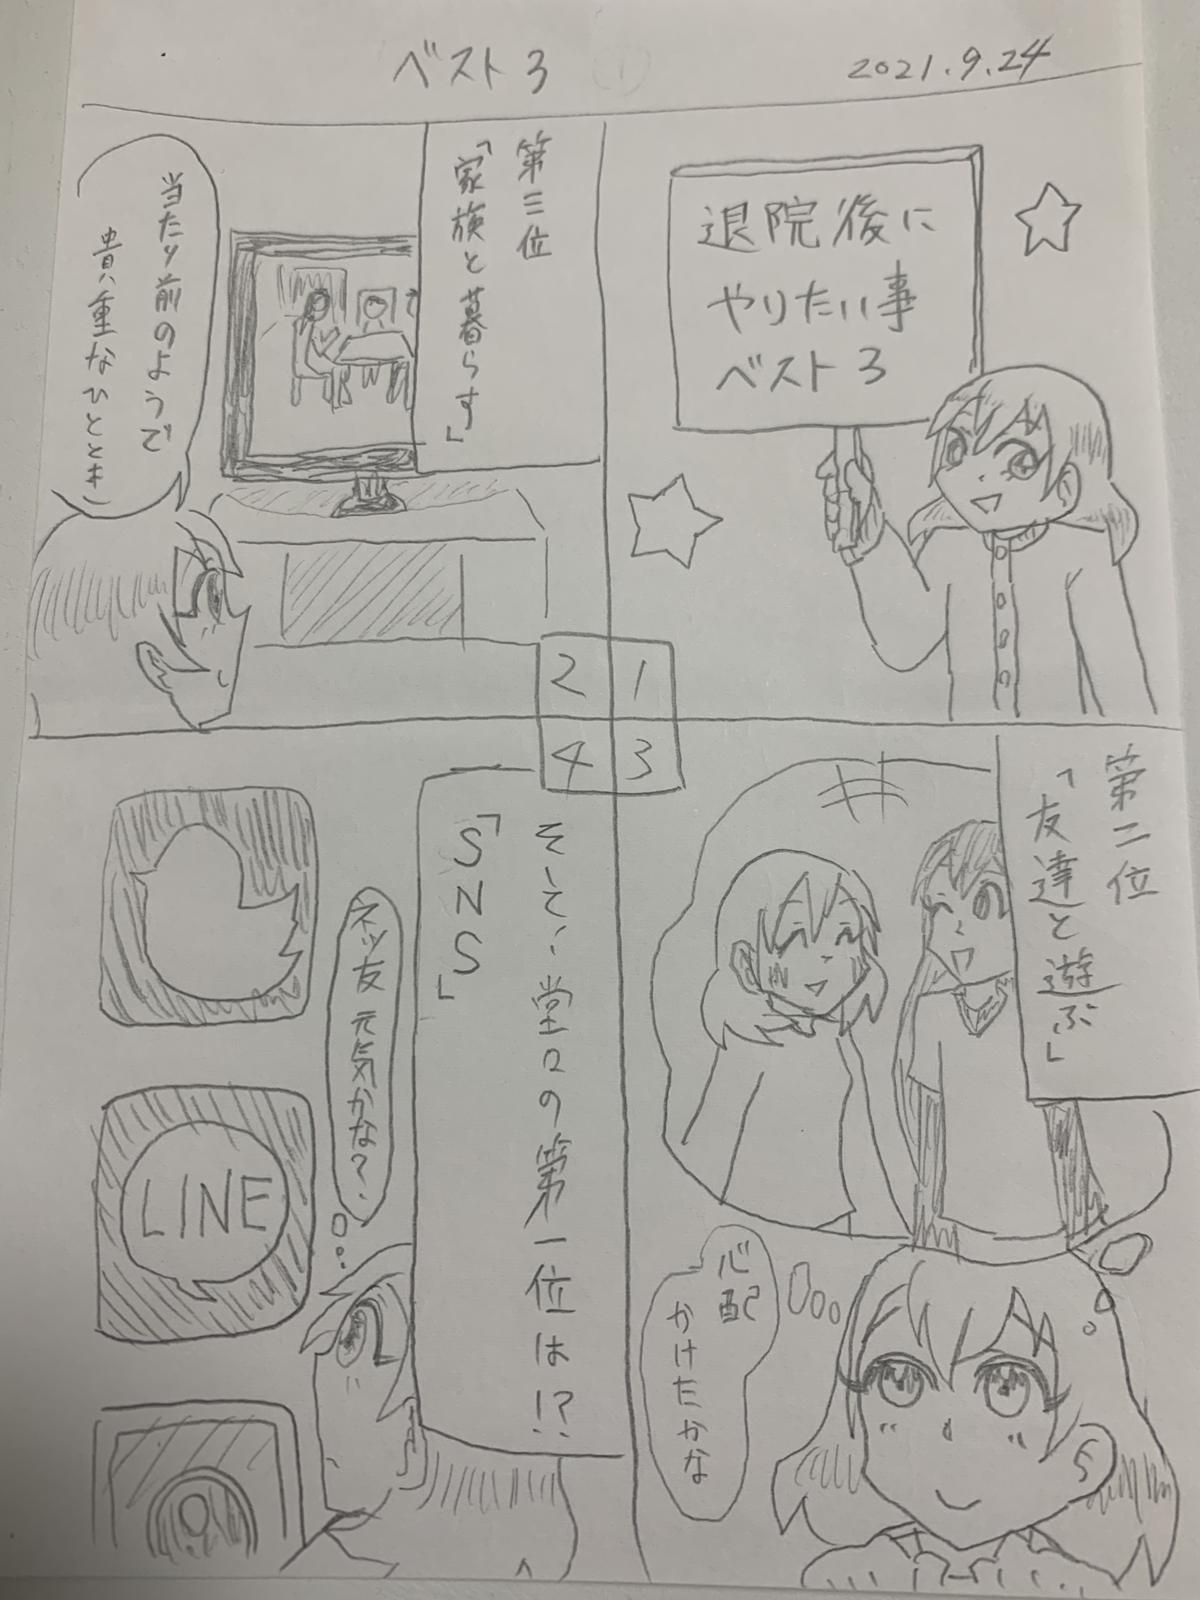 ベスト3
①
2021.9.24
退院後に
やりたい事
ベスト3
第三位
「家族と暮らす」
当たり前のようで
貴重なひととき
1
2
3
4
第二位
「友達と遊ぶ」
心配
かけたかな
そして、堂々の第一位は!?
「SNS」
ネッ友 元気かな?
LINE